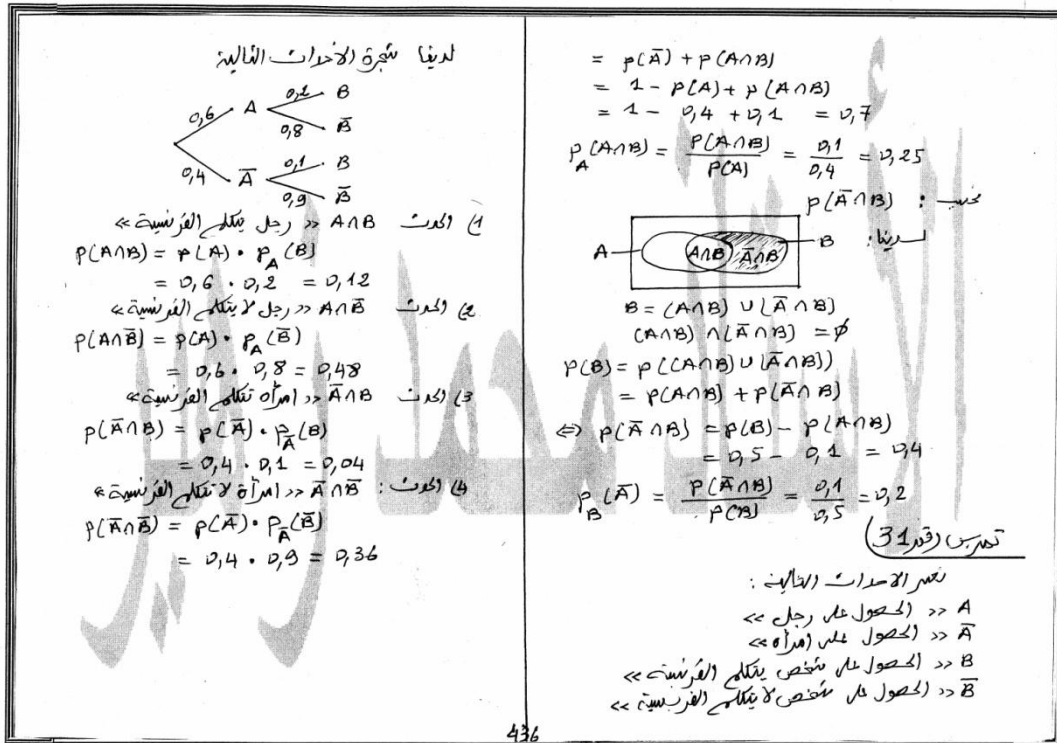 = p(Ā) + p(A∩B)
= 1 - p(A) + p(A∩B)
= 1 - 0,4 + 0,1 = 0,7
p_A(A∩B) = p(A∩B)/p(A) = 0,1/0,4 = 0,25
نحسب : p(Ā∩B)
لدينا :
A A∩B Ā∩B B
B = (A∩B) ∪ (Ā∩B)
(A∩B) ∩ (Ā∩B) = ∅
p(B) = p((A∩B) ∪ (Ā∩B))
= p(A∩B) + p(Ā∩B)
⇔ p(Ā∩B) = p(B) - p(A∩B)
= 0,5 - 0,1 = 0,4
p_B(Ā) = p(Ā∩B)/p(B) = 0,1/0,5 = 0,2
تمرين رقم 31
نعتبر الأحداث التالية :
A «الحصول على رجل»
Ā «الحصول على امرأة»
B «الحصول على شخص يتكلم الفرنسية»
B̄ «الحصول على شخص لا يتكلم الفرنسية»
لدينا شجرة الأحداث التالية
0,6 A 0,2 B
0,8 B̄
0,4 Ā 0,1 B
0,9 B̄
1) الحدث A∩B «رجل يتكلم الفرنسية»
p(A∩B) = p(A) · p_A(B)
= 0,6 · 0,2 = 0,12
2) الحدث A∩B̄ «رجل لا يتكلم الفرنسية»
p(A∩B̄) = p(A) · p_A(B̄)
= 0,6 · 0,8 = 0,48
3) الحدث Ā∩B «امرأة تتكلم الفرنسية»
p(Ā∩B) = p(Ā) · p_Ā(B)
= 0,4 · 0,1 = 0,04
4) الحدث : Ā∩B̄ «امرأة لا تتكلم الفرنسية»
p(Ā∩B̄) = p(Ā) · p_Ā(B̄)
= 0,4 · 0,9 = 0,36
436